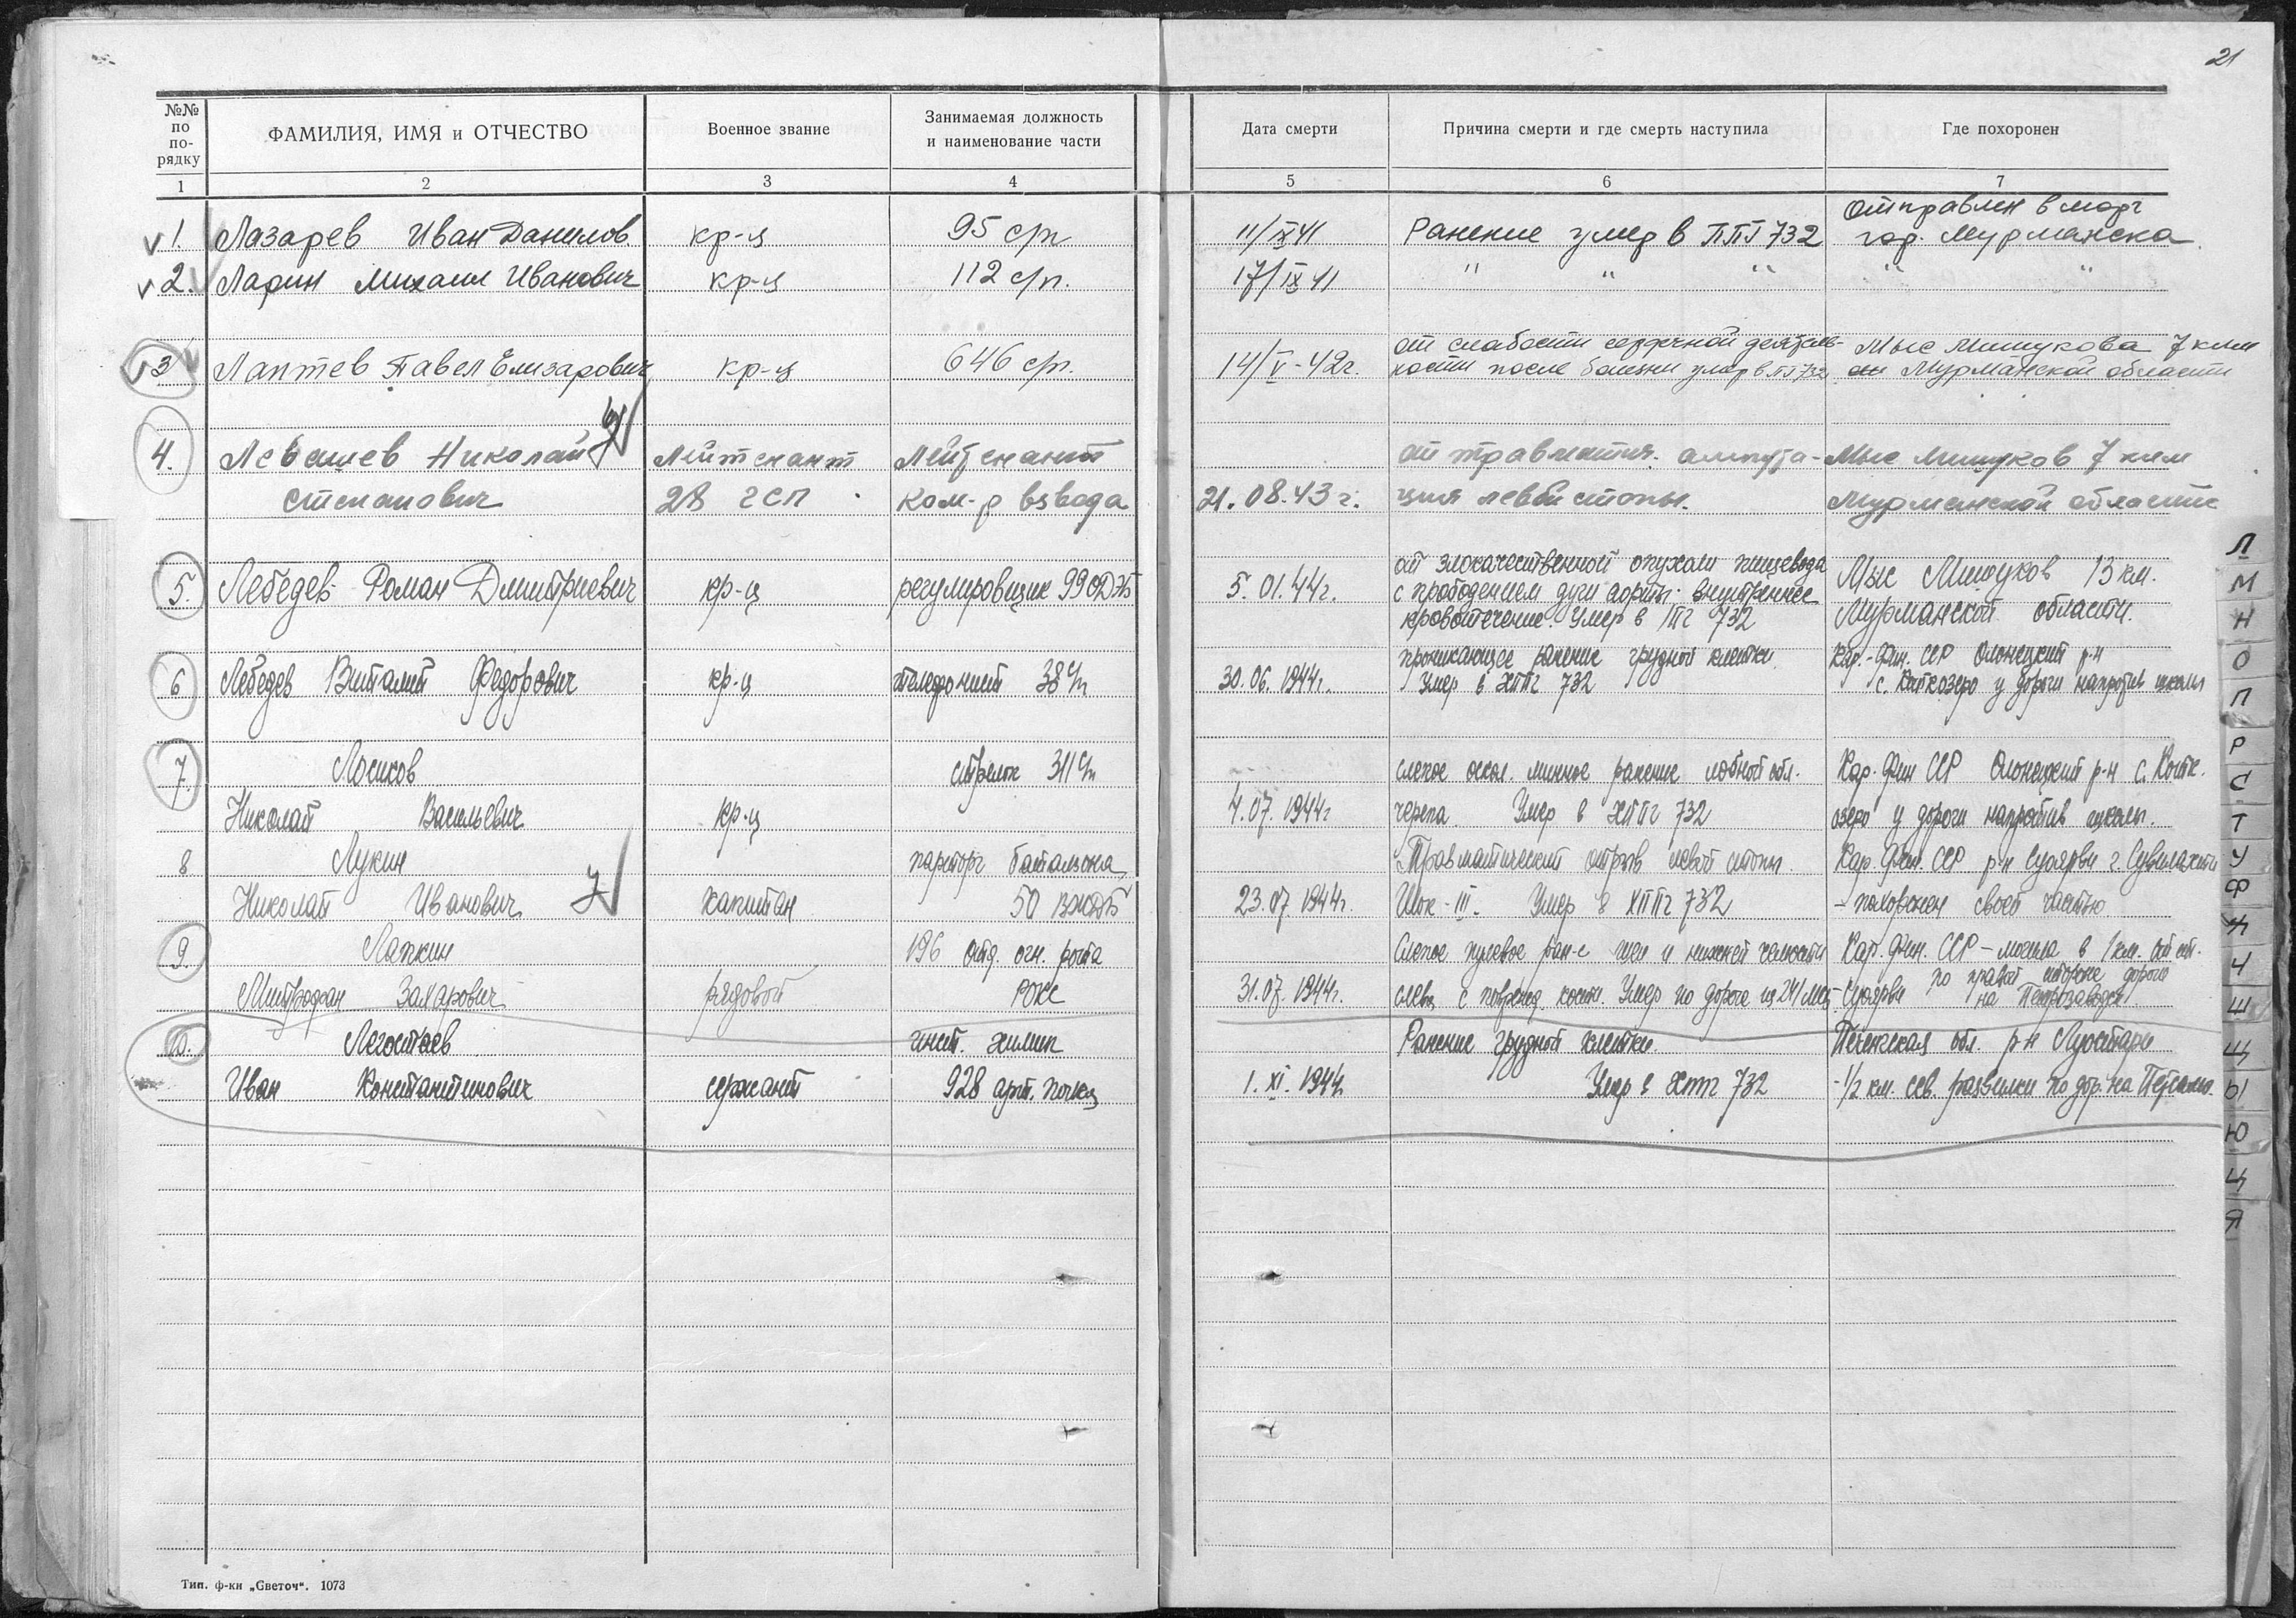 21
№№ по по- рядку
ФАМИЛИЯ, ИМЯ и ОТЧЕСТВО
Военное звание
Занимаемая должность
и наименование части
Дата смерти
Причина смерти и где смерть наступила
Где похоронен
1 2 3 4 5 6 7
Отправлен в морг
1. Лазарев Иван Данилов. кр-ц 95 с/п 11/IX 41 Ранение умер в ППГ 732 гор. Мурманска.
2. Ларин Михаил Иванович кр-ц 112 с/п. 17/IX 41 " " " " "
от слабости сердечной деятель- Мыс Мишукова 7 клм
3 Лаптев Павел Елизарович кр-ц 646 с/п. 14/V-42г. ности после болезни умер в ПГ 732 Мурманской области
4. Левашев Николай Лейтенант Лейтенант ампута- Мыс Мишуков 7 клм
Степанович 28 гсп ком-р взвода 21.08.43 г. ция левой стопы. Мурманской области
от злокачественной опухоли пищевода
5. Лебедев Роман Дмитриевич кр-ц регулировщик 99 ОДЭБ 5.01.44г. с прободением дуги аорты. внутреннее Мыс Мишуков 13 км.
кровотечение. Умер в ППГ 732 Мурманской области.
проникающее ранение грудной клетки Кар.-Фин. ССР Олонецкий р-н
6 Лебедев Виталий Федорович кр-ц телефонист 38 с/п 30.06.1944г. Умер в ХППГ 732 с. Коткозеро у дороги напротив школы
7. Лосиков стрелок 311 с/п слепое оскол. минное ранение лобной обл. Кар. Фин ССР Олонецкий р-н с. Котк.
Николай Васильевич кр-ц 4.07.1944г черепа. Умер в ХППГ 732 озеро у дороги напротив школы.
8 Лукин парторг батальона Травматический отрыв левой стопы. Кар. Фин. ССР р-н Суоярви г.
Николай Иванович капитан 50 23.07.1944г. Шок-III. Умер в ХППГ 732 - похоронен своей частью
9. Лапкин 196 отд. огн. рота Слепое пулевое ран-е шеи и нижней челюсти Кар. Фин. ССР - могила в 1 км. от ст.
Митрофан Захарович рядовой РОКС 31.07.1944г. слева с поврежд. кости. Умер по дороге из Суоярви по правой стороне дороги
на Петрозаводск
10. Легостаев инст. химик Ранение грудной клетки. Печенгская обл. р-н Луостари
Иван Константинович сержант 928 арт. полка 1.XI.1944г. Умер в ХППГ 732 -1/2 км. сев. развилки по дор. на Петсамо.
Л
М
Н
О
П
Р
С
Т
У
Ф
Х
Ч
Ш
Щ
Ы
Ю
Ц
Я
Тип. ф-ки „Светоч“. 1073